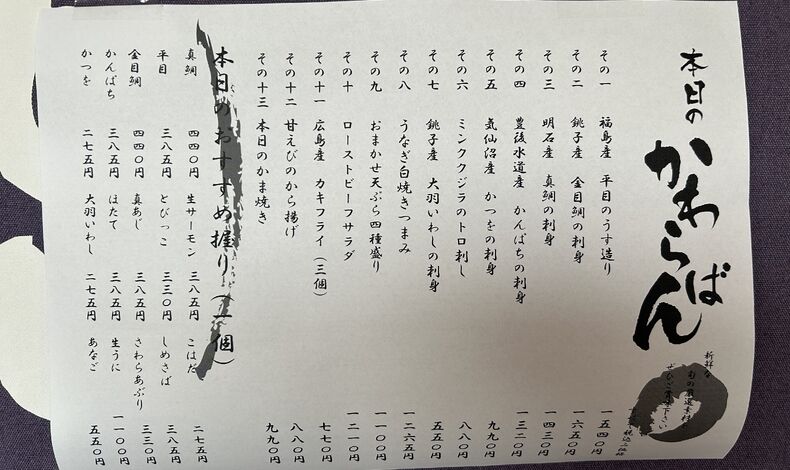 本日の
かわらばん
新鮮な
旬の厳選素材
ぜひご賞味下さい
その一 福島産 平目のうす造り 一五四〇円
その二 銚子産 金目鯛の刺身 一六五〇円
その三 明石産 真鯛の刺身 一四三〇円
その四 豊後水道産 かんぱちの刺身 一三二〇円
その五 気仙沼産 かつをの刺身 九九〇円
その六 ミンククジラのトロ刺し 八八〇円
その七 銚子産 大羽いわしの刺身 五五〇円
その八 うなぎ白焼きつまみ 一二六五円
その九 おまかせ天ぷら四種盛り 一一〇〇円
その十 ローストビーフサラダ 一二一〇円
その十一 広島産 カキフライ(三個) 七七〇円
その十二 甘えびのから揚げ 八八〇円
その十三 本日のかま焼き 九九〇円
本日のおすすめ握り(一個)
真鯛 四四〇円 生サーモン 三八五円 こはだ 二七五円
平目 三八五円 とびっこ 三三〇円 しめさば 三八五円
金目鯛 四四〇円 真あじ 三八五円 さわらあぶり 三三〇円
かんぱち 三八五円 ほたて 三八五円 生うに 一一〇〇円
かつを 二七五円 大羽いわし 二七五円 あなご 五五〇円